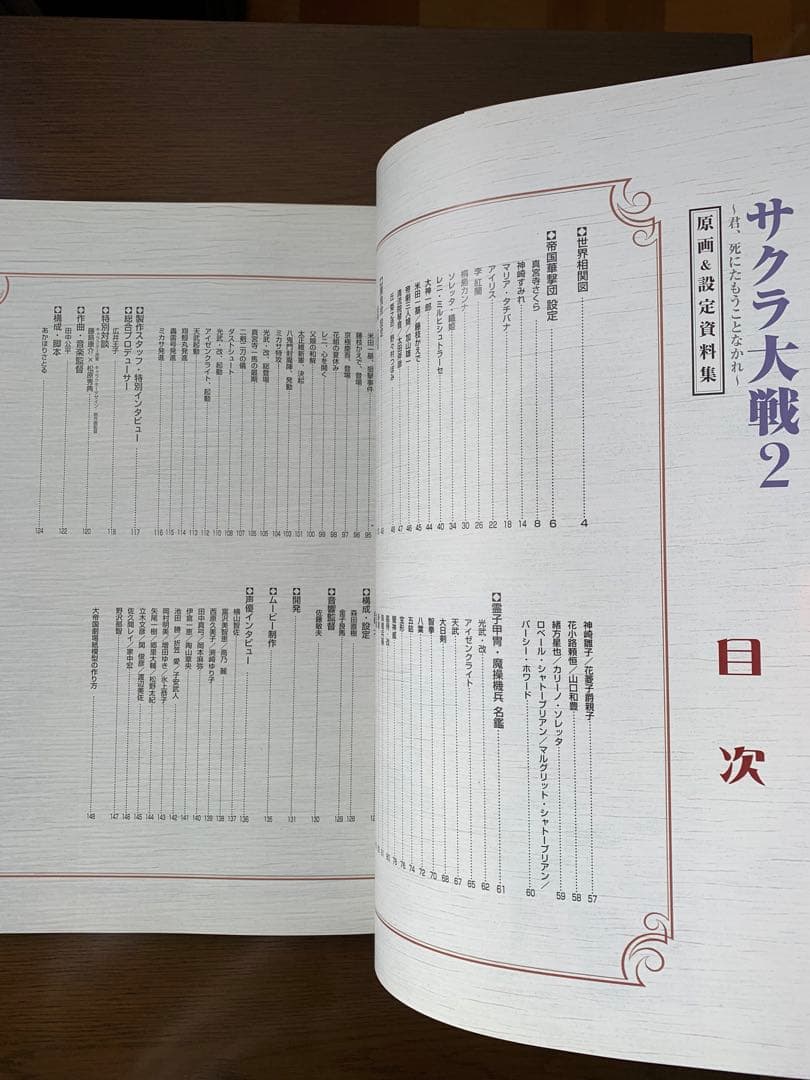 サクラ大戦2
~君、死にたもうことなかれ~
原画&設定資料集
目次
世界相関図 4
帝国華撃団 設定 6
真宮寺さくら 8
神崎すみれ 14
マリア・タチバナ 18
アイリス 22
李 紅蘭 26
桐島カンナ 30
ソレッタ・織姫 34
レニ・ミルヒシュトラーセ 40
大神一郎 44
米田一基/藤枝かえで 45
帝劇三人娘/加山雄一 46
神崎雛子/花菱子爵親子 57
花小路頼恒/山口和豊 58
緒方星也/カリーノ・ソレッタ 59
ロベール・シャトーブリアン/マルグリット・シャトーブリアン/
パーシー・ホワード 60
霊子甲冑・魔操機兵 名鑑 61
光武・改 62
アイゼンクライト 65
天武 67
大日剣 68
智拳 70
八葉 72
五鈷 74
宝形 76
米田一基、狙撃事件 95
藤枝かえで、登場 96
京極慶吾、登場 97
花組の夏休み 98
レニ、心を開く 99
父娘の和解 100
太正維新軍、決起 101
八鬼門封魔陣、発動 103
ミカサ特攻 104
光武・改、総登場 105
真宮寺一馬の最期 105
二剣二刀の儀 107
ダストシュート 108
光武・改、起動 110
アイゼンクライト、起動 112
天武起動 113
翔鯨丸発進 114
轟雷号発進 115
ミカサ発進 116
製作スタッフ・特別インタビュー 117
総合プロデューサー
広井王子 118
特別対談
藤島康介×松原秀典 120
作曲・音楽監督
田中公平 122
構成・脚本
あかほりさとる 124
構成・設定
森田直樹 128
金子良馬 129
音響監督
佐藤敏夫 130
開発 131
ムービー制作 135
声優インタビュー 136
横山智佐 137
富沢美智恵/高乃 麗 138
西原久美子/渕崎ゆり子 139
田中真弓/岡本麻弥 140
伊倉一恵/陶山章央 141
池田 勝/折笠 愛/子安武人 142
岡村明美/増田ゆき/氷上恭子 143
矢尾一樹/郷里大輔/松野太紀 144
立木文彦/関 俊彦/渡辺美佐 145
佐久間レイ/家中宏 146
野沢那智 147
大帝国劇場紙模型の作り方 148